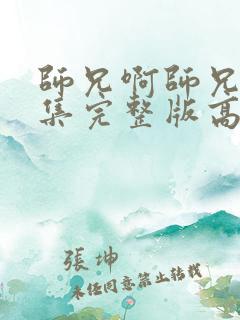 師兄啊師兄
集完整版高
張坤
未經同意禁止轉載